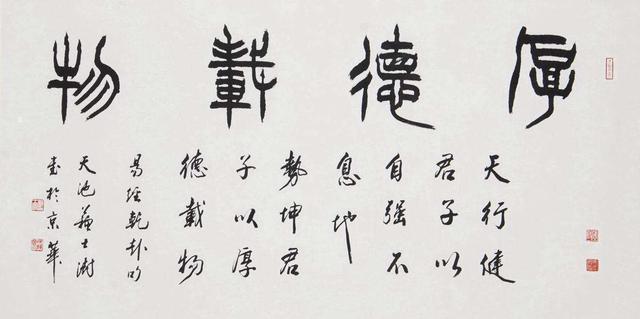 厚德載物
天行健
君子以
自强不
息地
勢坤君
子以厚
德載物
易經乾卦句
天池蘇士澍
書於京華